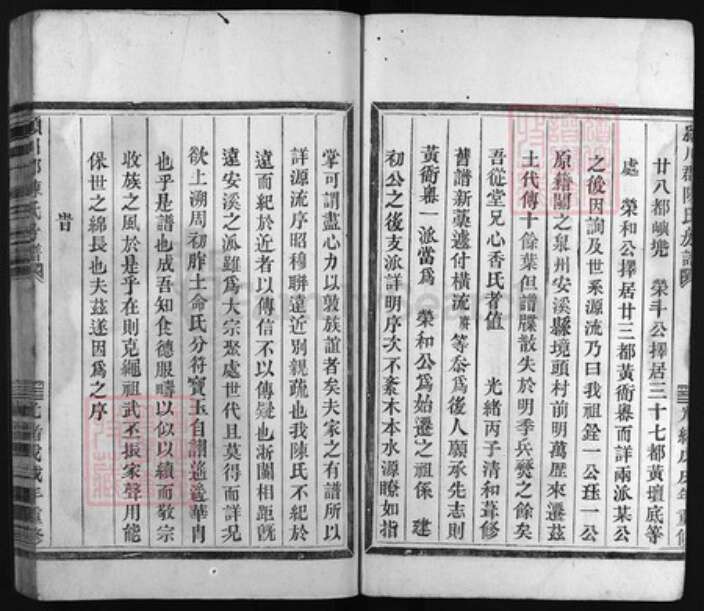 廿八都嶼兠　榮斗公擇居三十七都黃壇底等
處　榮和公擇居廿三都黃衙嶴而詳兩派某公
之後因詢及世系源流乃曰我祖銓一公珏一公
原籍閩之泉州安溪縣境頭村前明萬歷來遷茲
土代傳十餘葉但譜牒散失於明季兵燹之餘矣
吾從堂兄心香氏者值　光緒丙子清和葺修
舊譜新藁遽付橫流濟等忝為後人願承先志則
黃衙嶴一派當為　榮和公為始遷之祖係　建
初公之後支派詳明序次不紊木本水源瞭如指
掌可謂盡心力以敦族誼者矣夫家之有譜所以
詳源流序昭穆聯遠近別親疏也我陳氏不紀於
遠而紀於近者以傳信不以傳疑也浙閩相距旣
遠安溪之派雖為大宗聚處世代且莫得而詳況
欲上溯周初胙土命氏分符寶玉自謝遙遙華胄
也乎是譜也成吾知食德服疇以似以續而敬宗
收族之風於是乎在則克繩祖武丕振家聲用能
保世之綿長也夫茲遂因為之序
旹
潁川郡陳氏房譜
光緒戊戌年重修